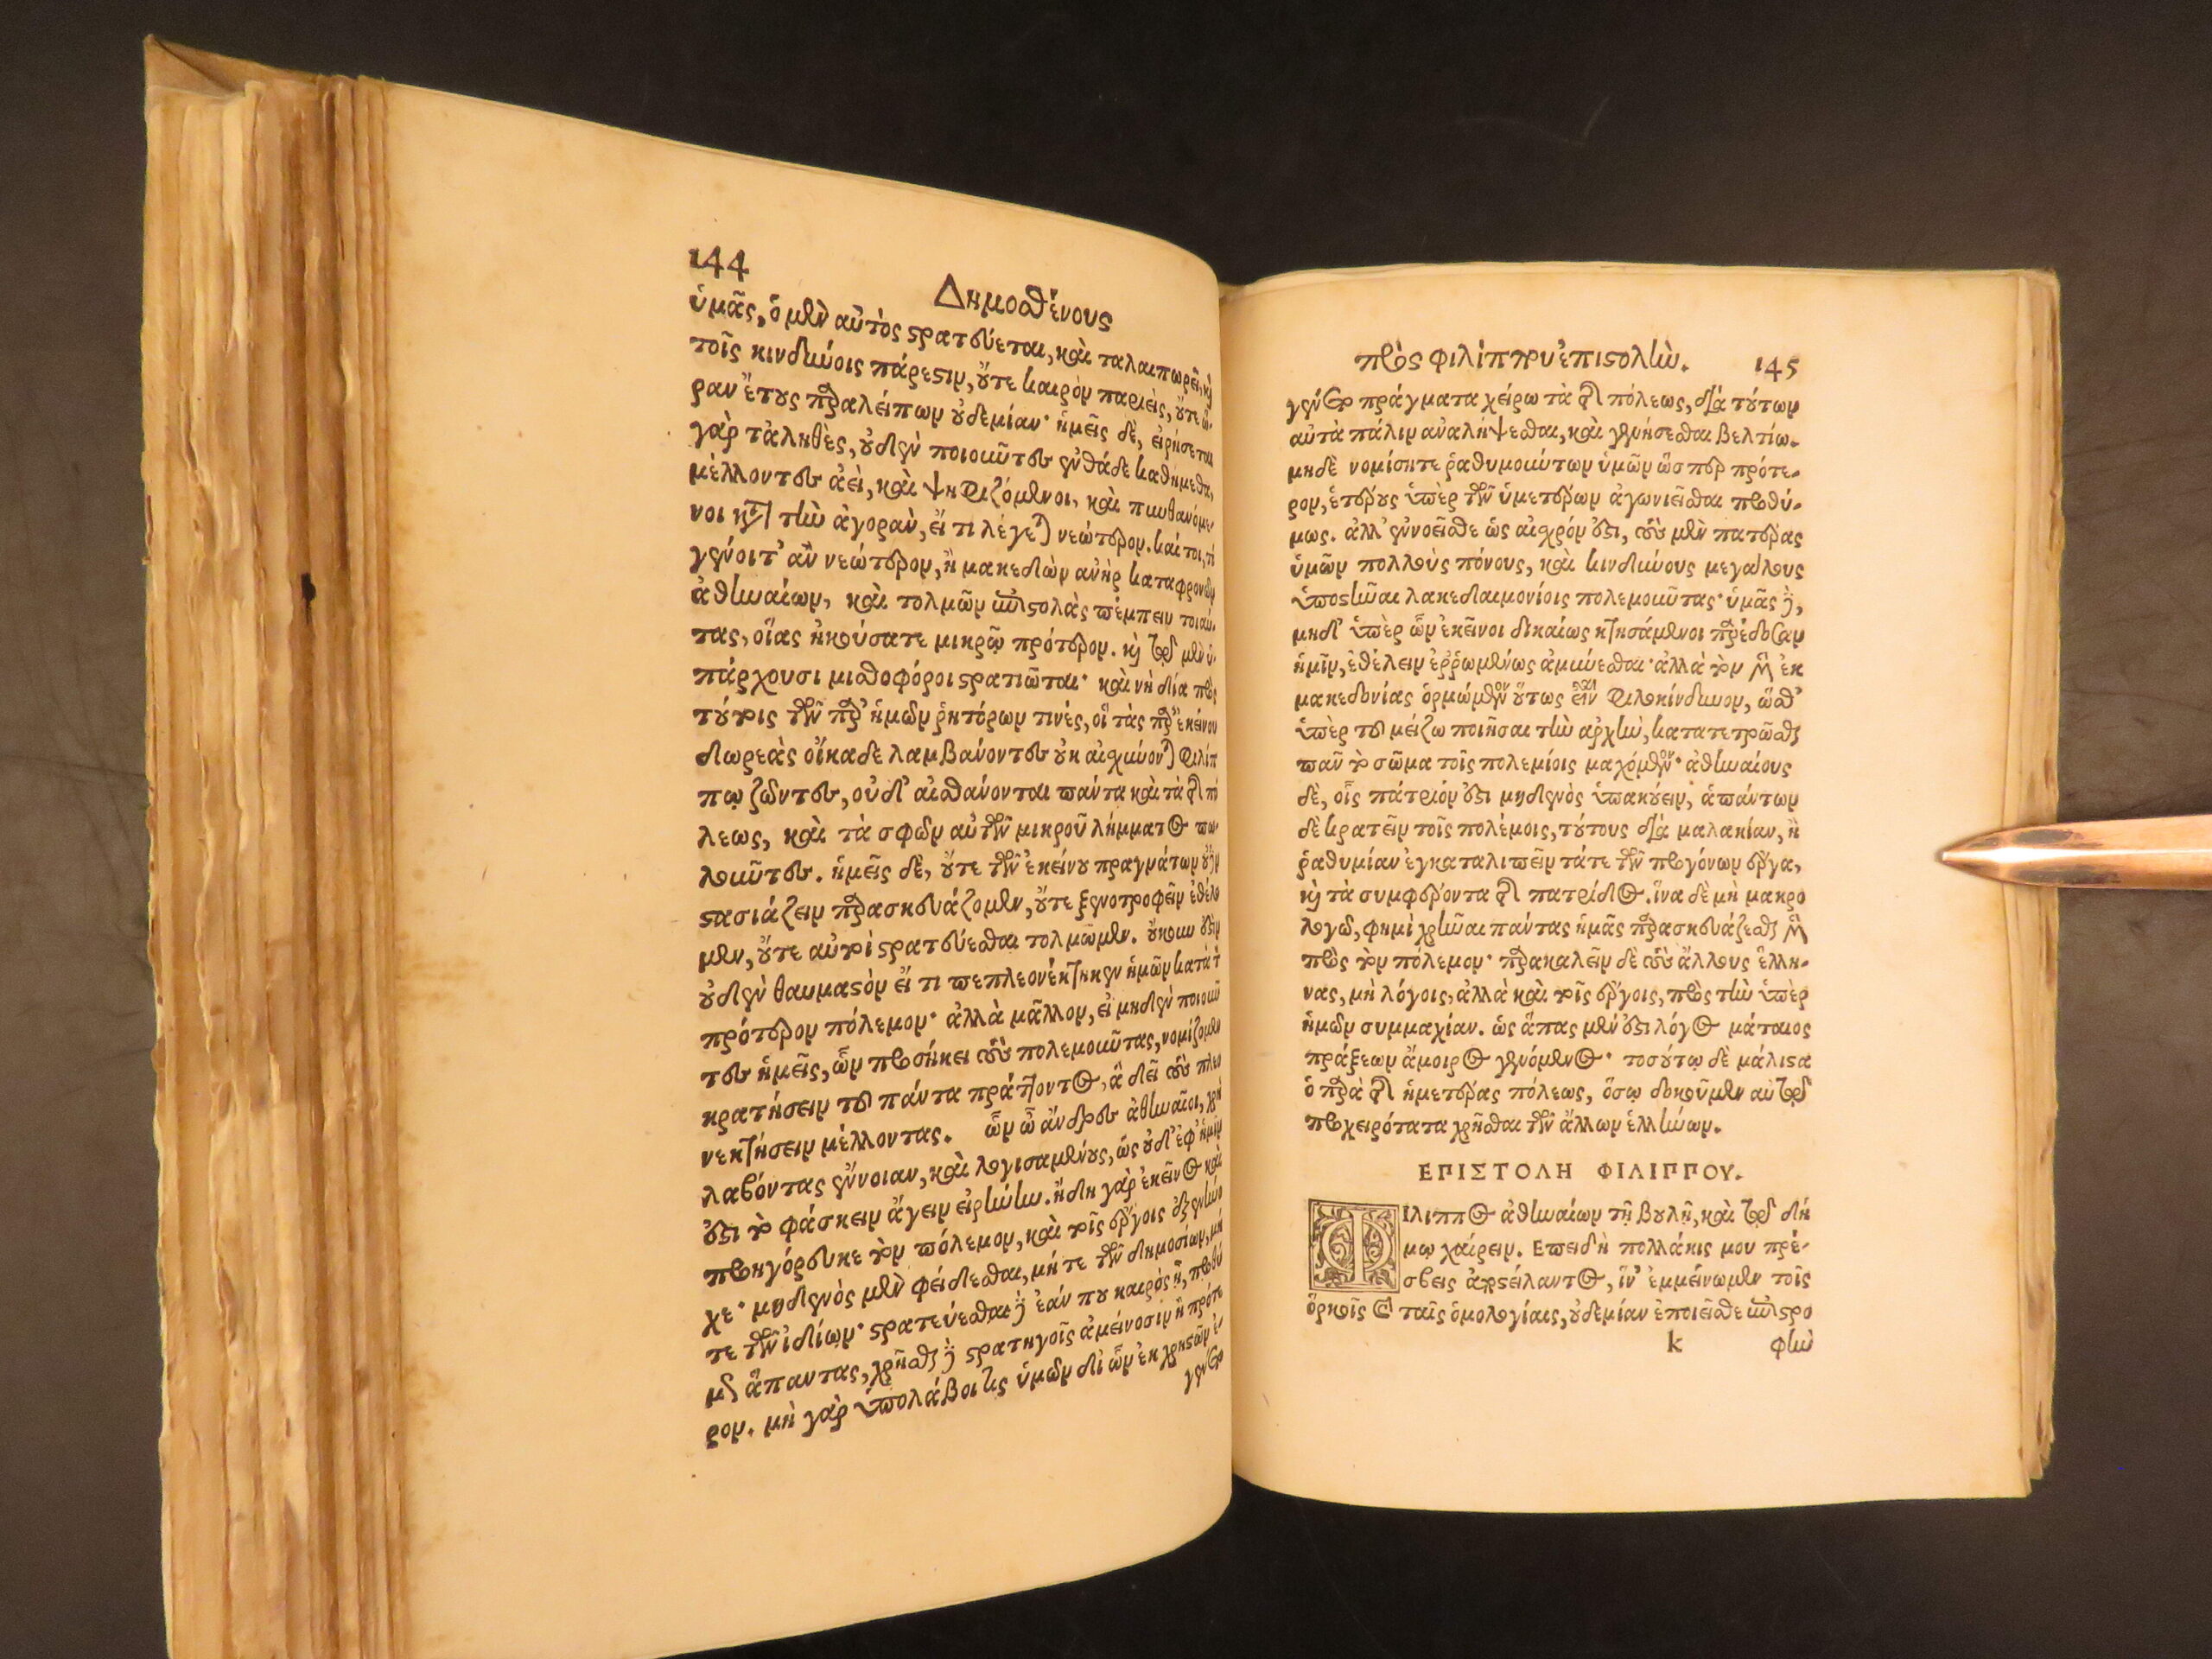 144
Δημοσθένους
ὑμᾶς, ὁ μὲν αὐτὸς στρατεύεται, καὶ ταλαιπωρεῖ, καὶ
τοῖς κινδύνοις πάρεστιν, οὔτε καιρὸν παριεὶς, οὔτε ὥ-
ραν ἔτους παραλείπων οὐδεμίαν· ἡμεῖς δὲ, εἰρήσεται
γὰρ τἀληθὲς, οὐδὲν ποιοῦντες ἐνθάδε καθήμεθα,
μέλλοντες ἀεὶ, καὶ ψηφιζόμενοι, καὶ πυνθανόμε-
νοι κατὰ τὴν ἀγορὰν, εἴ τι λέγεται νεώτερον. καίτοι, τί
γένοιτ’ ἂν νεώτερον, ἢ μακεδὼν ἀνὴρ καταφρονῶν
ἀθηναίων, καὶ τολμῶν ἐπιστολὰς πέμπειν τοιαύ-
τας, οἵας ἠκούσατε μικρῷ πρότερον. καὶ τῷ μὲν ὑ-
πάρχουσι μισθοφόροι στρατιῶται· καὶ νὴ δία πρὸς
τούτοις τῶν παρ’ ἡμῶν ῥητόρων τινές, οἳ τὰς παρ’ ἐκείνου
δωρεὰς οἴκαδε λαμβάνοντες οὐκ αἰσχύνονται φιλίπ
πῳ ζῶντες, οὐδ’ αἰσθάνονται πάντα καὶ τὰ τῆς πό
λεως, καὶ τὰ σφῶν αὐτῶν μικροῦ λήμματος πω-
λοῦντες. ἡμεῖς δὲ, οὔτε τῶν ἐκείνου πραγμάτων οὐδὲν
στασιάζειν παρασκευάζομεν, οὔτε ξενοτροφεῖν ἐθέλο
μεν, οὔτε αὐτοὶ στρατεύεσθαι τολμῶμεν. οὔκουν ἐστὶν
οὐδὲν θαυμαστὸν εἴ τι πεπλεονέκτηκεν ἡμῶν κατὰ τὸν
πρότερον πόλεμον· ἀλλὰ μᾶλλον, εἰ μηδὲν ποιοῦν
τες ἡμεῖς, ὧν προσήκει τοὺς πολεμοῦντας, νομίζομεν
κρατήσειν τοῦ πάντα πράττοντος, ἃ δεῖ τοὺς πλεο
νεκτήσειν μέλλοντας. ὧν ὦ ἄνδρες ἀθηναῖοι, χρὴ
λαβόντας ἔννοιαν, καὶ λογισαμένους, ὡς οὐδ’ ἐφ’ ἡμῖν
ἐστι τὸ φάσκειν ἄγειν εἰρήνην. ἤδη γὰρ ἐκεῖνος καὶ
προηγόρευκε τὸν πόλεμον, καὶ τοῖς ἔργοις ἐξενήνο
χε· μηδενὸς μὲν φείδεσθαι, μήτε τῶν δημοσίων, μή
τε τῶν ἰδίων· στρατεύεσθαι δὲ ἐάν που καιρὸς ᾖ, προθύ
μως ἅπαντας, χρῆσθαι δὲ στρατηγοῖς ἀμείνοσιν ἢ πρότε
ρον. μὴ γὰρ ὑπολάβοι τις ὑμῶν δι’ ὧν ἐκ χρηστῶν ἐ-
γένετο
πρὸς φιλίππου ἐπιστολήν. 145
γένετο πράγματα χείρω τὰ τῆς πόλεως, διὰ τούτων
αὐτὰ πάλιν ἀναλήψεσθαι, καὶ γενήσεσθαι βελτίω.
μηδὲ νομίσητε ῥαθυμούντων ὑμῶν ὥσπερ πρότε-
ρον, ἑτέρους ὑπὲρ τῶν ὑμετέρων ἀγωνιεῖσθαι προθύ-
μως. ἀλλ’ ἐννοεῖσθε ὡς αἰσχρόν ἐστι, τοὺς μὲν πατέρας
ὑμῶν πολλοὺς πόνους, καὶ κινδύνους μεγάλους
ὑποστῆναι λακεδαιμονίοις πολεμοῦντας· ὑμᾶς δὲ,
μηδ’ ὑπὲρ ὧν ἐκεῖνοι δικαίως κτησάμενοι παρέδοσαν
ἡμῖν, ἐθέλειν ἐῤῥωμένως ἀμύνεσθαι· ἀλλὰ τὸν μὲν ἐκ
μακεδονίας ὁρμώμενον οὕτως εἶναι φιλοκίνδυνον, ὥσθ’
ὑπὲρ τοῦ μείζω ποιῆσαι τὴν ἀρχὴν, κατατετρῶσθαι
πᾶν τὸ σῶμα τοῖς πολεμίοις μαχόμενον· ἀθηναίους
δὲ, οἷς πάτριόν ἐστι μηδενὸς ὑπακούειν, ἁπάντων
δὲ κρατεῖν τοῖς πολέμοις, τούτους διὰ μαλακίαν, ἢ
ῥαθυμίαν ἐγκαταλιπεῖν τά τε τῶν προγόνων ἔργα,
καὶ τὰ συμφέροντα τῆς πατρίδος. ἵνα δὲ μὴ μακρο
λογῶ, φημὶ χρῆναι πάντας ἡμᾶς παρασκευάζεσθαι μὲν
πρὸς τὸν πόλεμον· παρακαλεῖν δὲ τοὺς ἄλλους ἕλλη-
νας, μὴ λόγοις, ἀλλὰ καὶ τοῖς ἔργοις, πρὸς τὴν ὑπὲρ
ἡμῶν συμμαχίαν. ὡς ἅπας μέν ἐστι λόγος μάταιος
πράξεων ἄμοιρος γενόμενος· τοσούτῳ δὲ μάλιστα
ὁ παρὰ τῆς ἡμετέρας πόλεως, ὅσῳ δοκοῦμεν αὐτῷ
προχειρότατα χρῆσθαι τῶν ἄλλων ἑλλήνων.
ΕΠΙΣΤΟΛΗ ΦΙΛΙΠΠΟΥ.
Φίλιππος ἀθηναίων τῇ βουλῇ, καὶ τῷ δή
μῳ χαίρειν. Επειδὴ πολλάκις μου πρέ-
σβεις ἀποστείλαντος, ἵν’ ἐμμείνωμεν τοῖς
ὅρκοις καὶ ταῖς ὁμολογίαις, οὐδεμίαν ἐποιεῖσθε ἐπιστρο
k φὴν